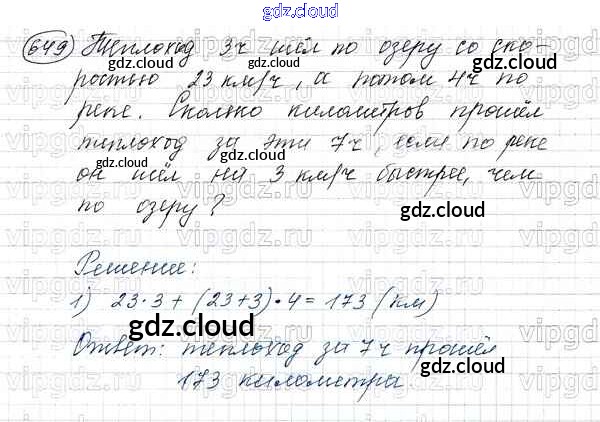 gdz.cloud
649 Теплоход 3ч шёл по озеру со ско-
ростью 23 км/ч, а потом 4ч по
реке. Сколько километров прошёл
теплоход за эти 7ч, если по реке
он шёл на 3 км/ч быстрее, чем
по озеру?
Решение:
1) 23·3+(23+3)·4=173 (км)
Ответ: теплоход за 7ч прошёл
173 километра.
gdz.cloud
gdz.cloud
gdz.cloud
gdz.cloud
gdz.cloud
gdz.cloud
gdz.cloud